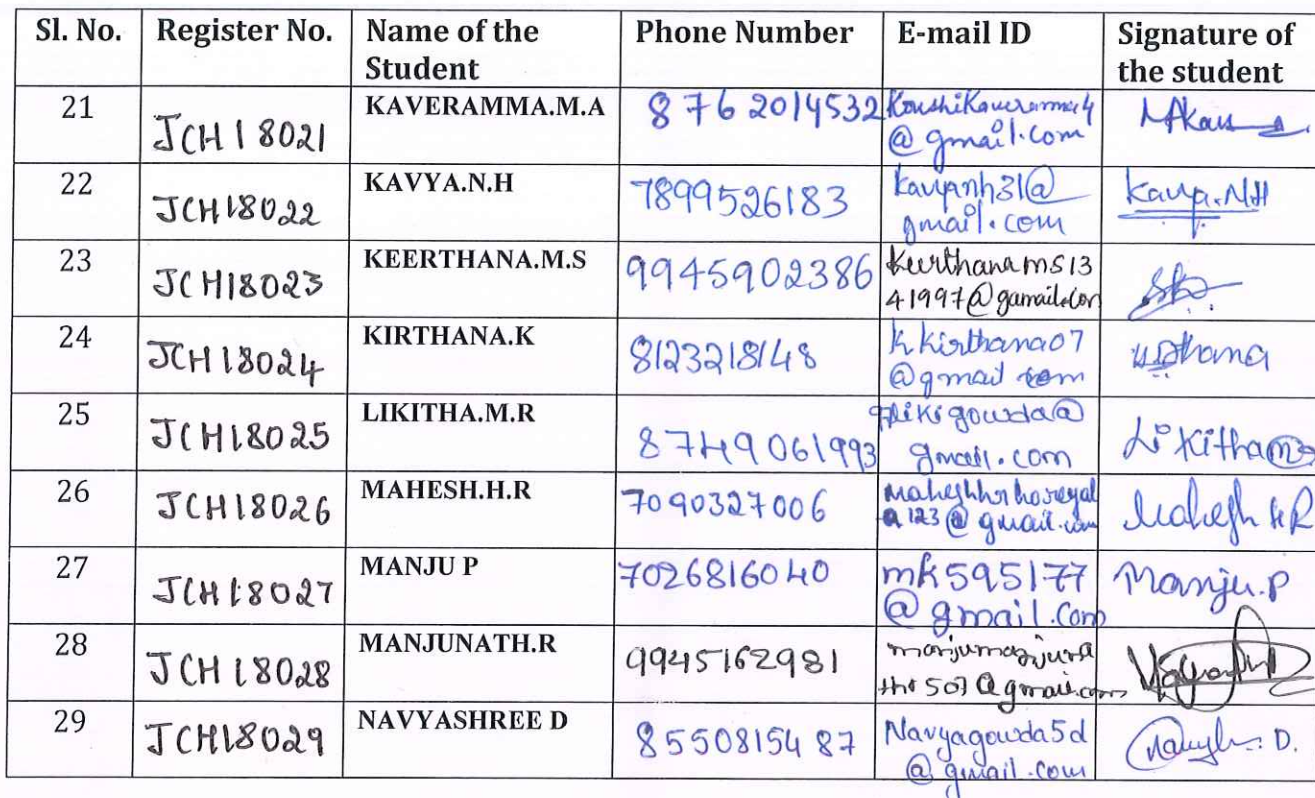 Sl. No. Register No. Name of the Student Phone Number E-mail ID Signature of the student
21 JCH18021 KAVERAMMA.M.A 8762014532
@gmail.com
22 JCH18022 KAVYA.N.H 7899526183 kavyanh31@
gmail.com Kavya.NH
23 JCH18023 KEERTHANA.M.S 9945902386 Keerthanams13
41997@gamail.com
24 JCH18024 KIRTHANA.K 8123218148 kkirthana07
@gmail com
25 JCH18025 LIKITHA.M.R 8749061993
gmail.com
26 JCH18026 MAHESH.H.R 7090327006 maheshhrhoreyal
a123@gmail.com Mahesh HR
27 JCH18027 MANJU P 7026816040 mk595177
@gmail.com Manju.P
28 JCH18028 MANJUNATH.R 9945162981
29 JCH18029 NAVYASHREE D 8550815487 Navyagowda5d
@gmail.com